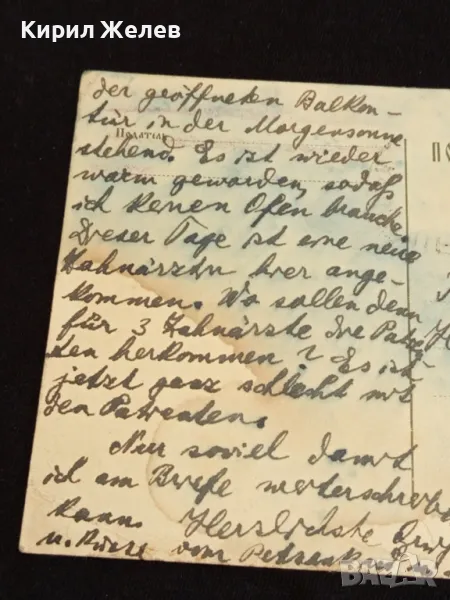 Кирил Желев
der geöffneten Balkon-
tür in der Morgensonne
Податіль
stehend. Es ist wieder
warm geworden, sodaß
ich keinen Ofen brauche
Dieser Tage ist eine neue
Zahnärztin hier ange-
kommen. Wo sollen denn
für 3 Zahnärzte die Patien
ten herkommen? Es ist
jetzt ganz schlecht mit
den Patienten.
Nur soviel damit
ich am Briefe weiterschreiben
kann. Herzlichste
u. Küsse vom
BAZAR